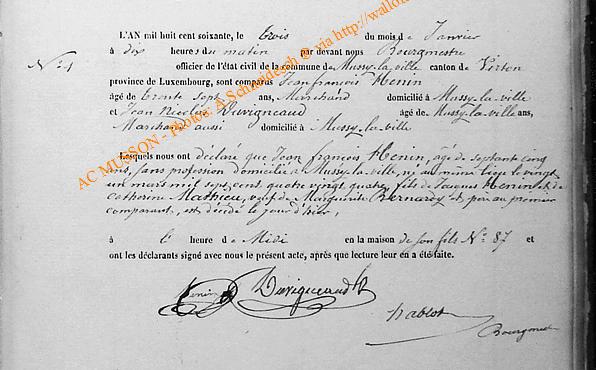 L'AN mil huit cent soixante, le trois du mois de Janvier
N° 4
à dix heures du matin par devant nous Bourgmestre
officier de l'état civil de la commune de Mussy-la-ville canton de Virton
province de Luxembourg, sont comparus Jean françois Henin
âgé de trente sept ans, Marchand domicilié à Mussy-la-ville
et Jean Nicolas Duvigneaud âgé de Mussy-la-ville ans,
Marchand aussi domicilié à Mussy-la-ville
Lesquels nous ont déclaré que Jean françois Henin, âgé de septante cinq
ans, sans profession domicilié à Mussy-la-ville, né au même lieu le vingt
un mars mil sept cent quatre vingt quatre, fils de Jacques Henin et de
Catherine Mathieu, veuf de Marguerite Bernardy et père au premier
comparant, est décédé le jour d'hier,
à l' heure de Midi en la maison de son fils N° 87 et
ont les déclarants signé avec nous le présent acte, après que lecture leur en a été faite.
Henin Duvigneaud
Bourgmest
AC MUSSON - Photos: A Schneidesch @ via http://wallon